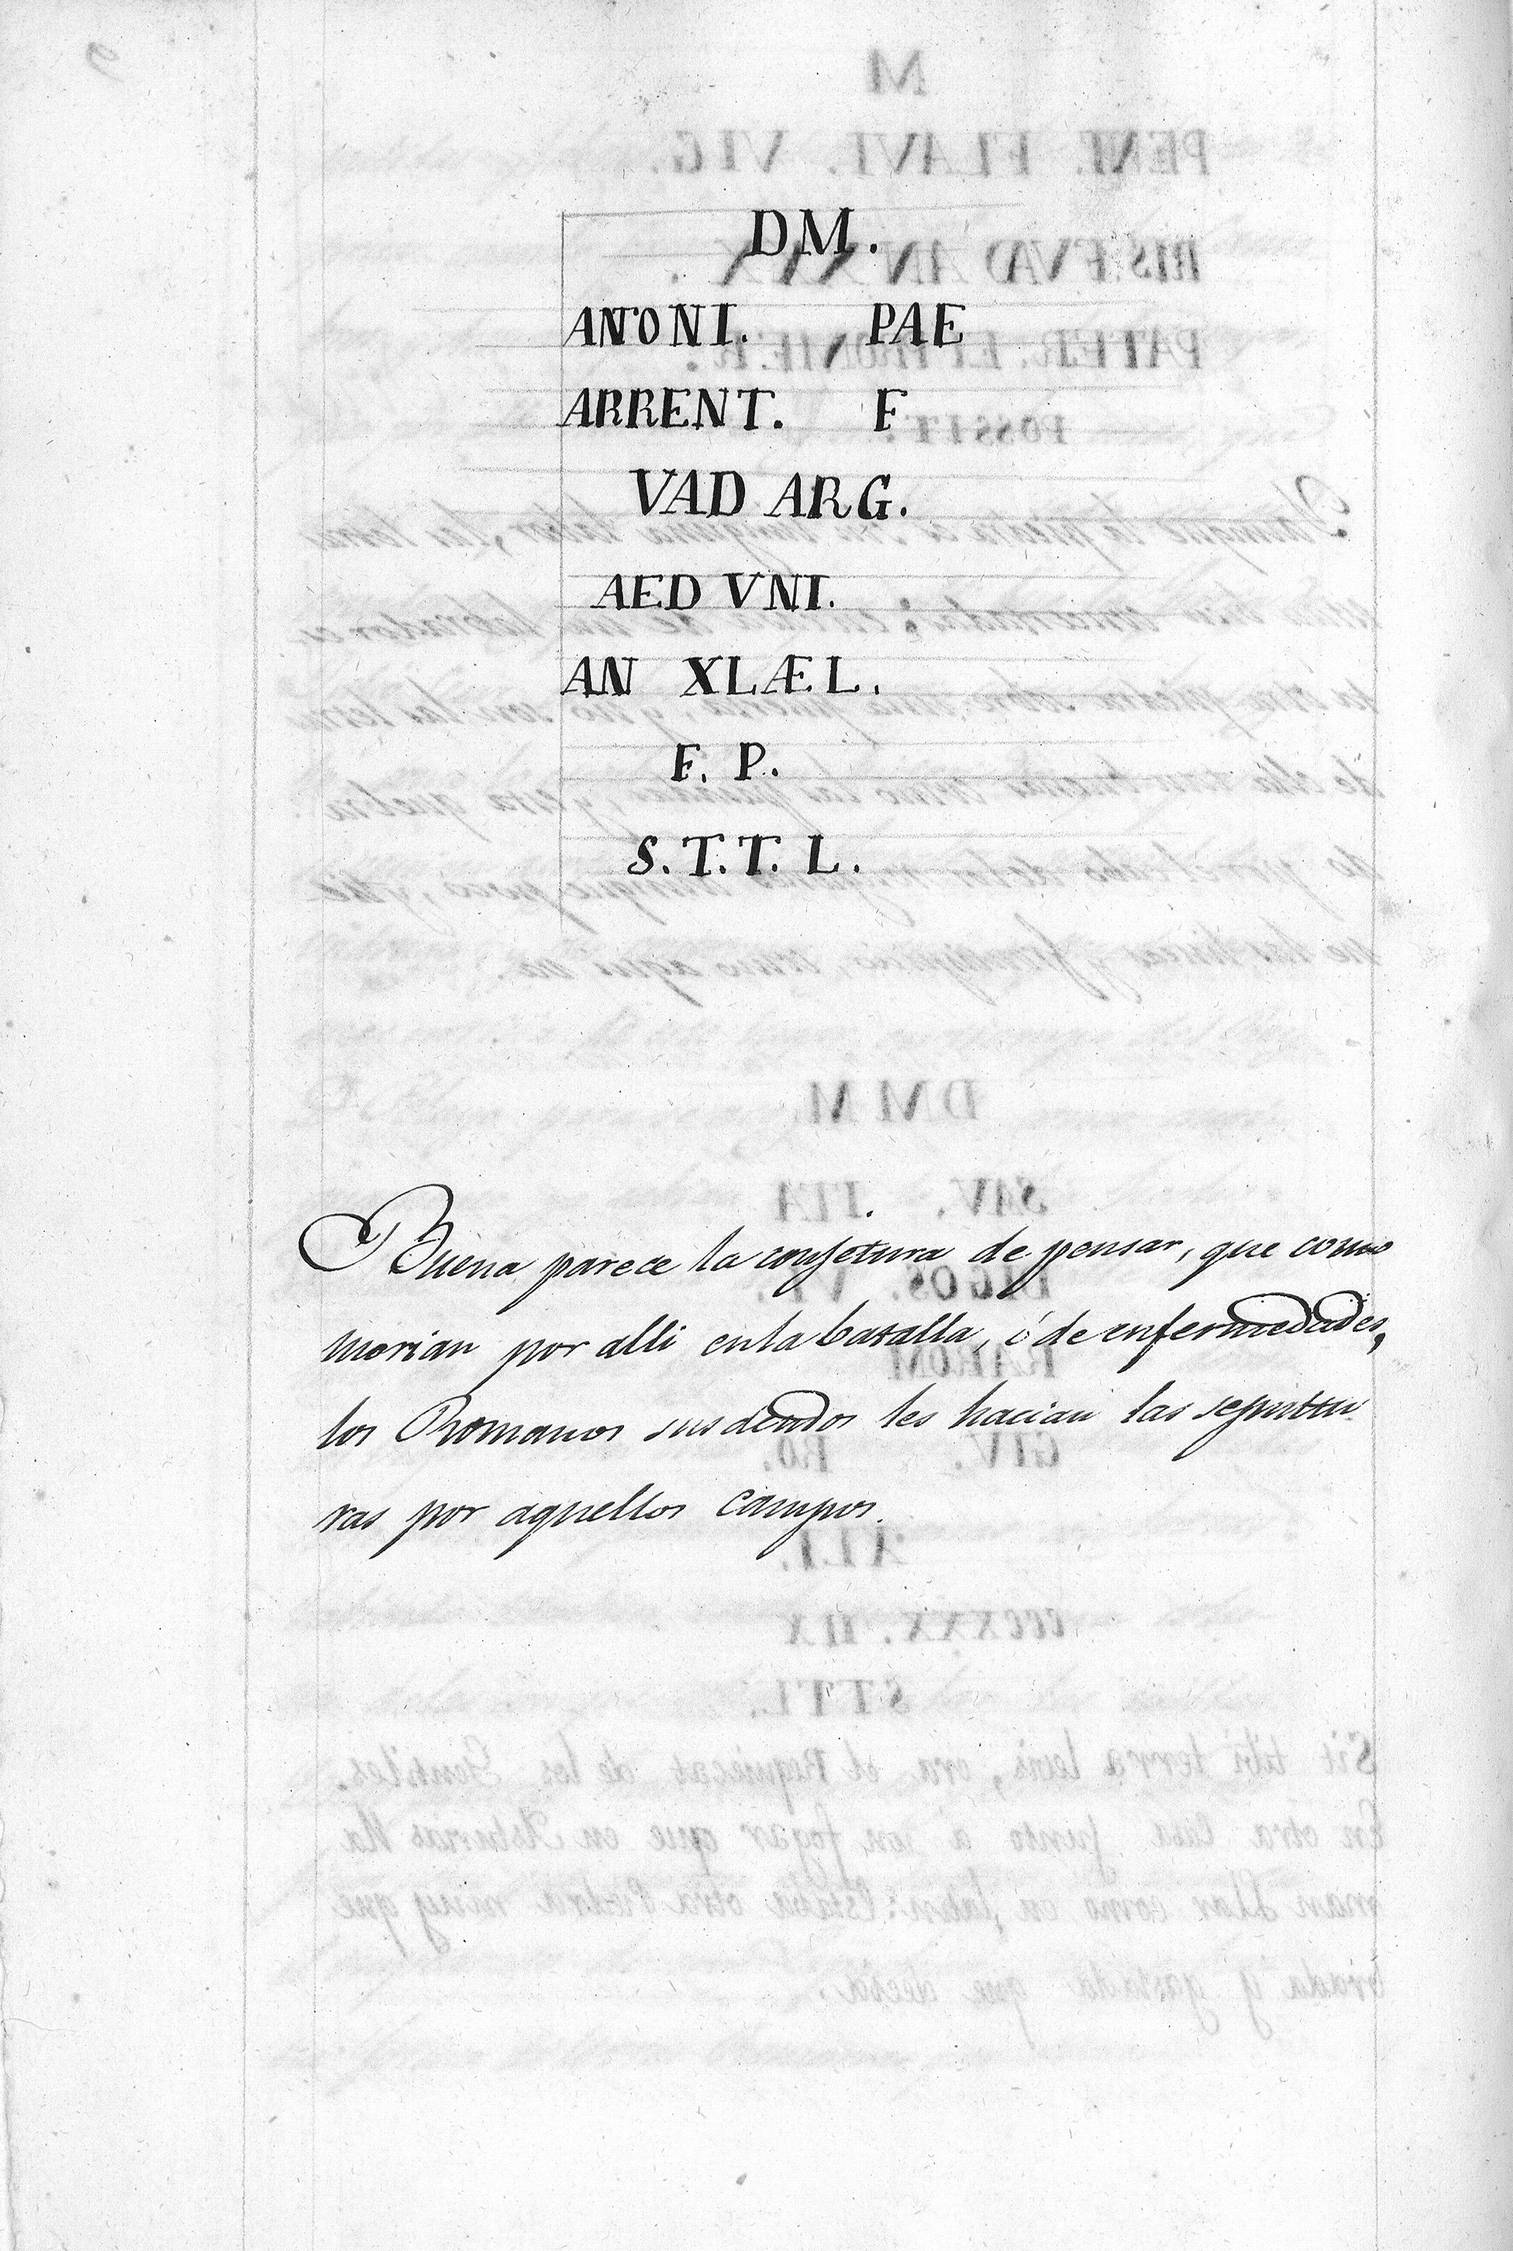 DM.
ANTONI. PAE
ARRENT. F
VAD ARG.
AED VNI.
AN XLÆL.
F. P.
S. T. T. L.
Buena parece la conjetura de pensar, que como
morian por alli en la batalla, ó de enfermedades,
los Romanos sus deudos les hacian las sepultu
ras por aquellos campos.